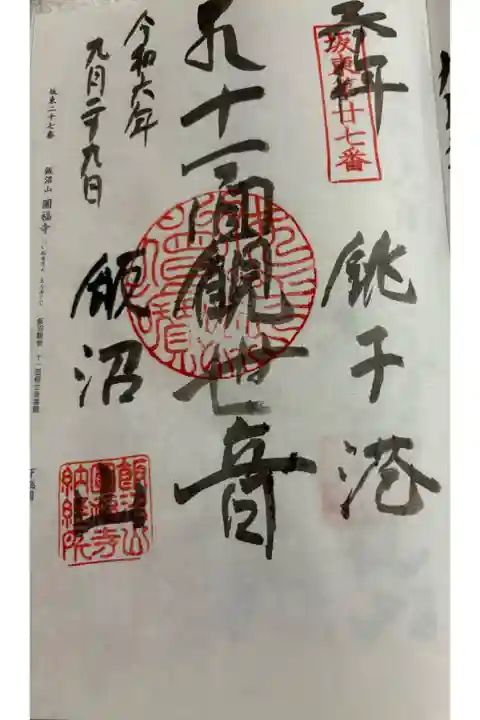 奉拝
坂東第廿七番
銚子港
十一面観世音
令和六年
九月二十九日
飯沼
飯沼山
圓福寺
納経所
坂東二十七番 飯沼山 圓福寺